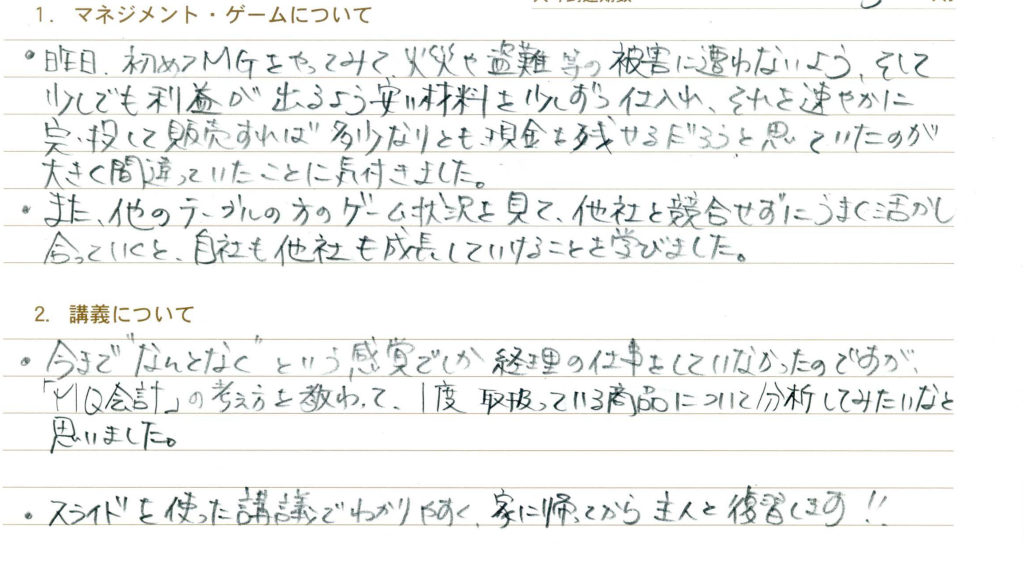 1. マネジメント・ゲームについて
・昨日、初めてMGをやってみて、火災や盗難等の被害に遭わないよう、そして
少しでも利益が出るよう安い材料を少しずつ仕入れ、それを速やかに
完・投して販売すれば多少なりとも、現金を残せるだろうと思っていたのが
大きく間違っていたことに気付きました。
・また、他のテーブルの方のゲーム状況を見て、他社と競合せずにうまく活かし
合っていくと、自社も他社も成長していけることを学びました。
2. 講義について
・今まで"なんとなく"という感覚でしか経理の仕事をしていなかったのですが、
「MQ会計」の考え方を教わって、1度取扱っている商品について分析してみたいなと
思いました。
・スライドを使った講議でわかりやすく、家に帰ってから主人と復習します!!